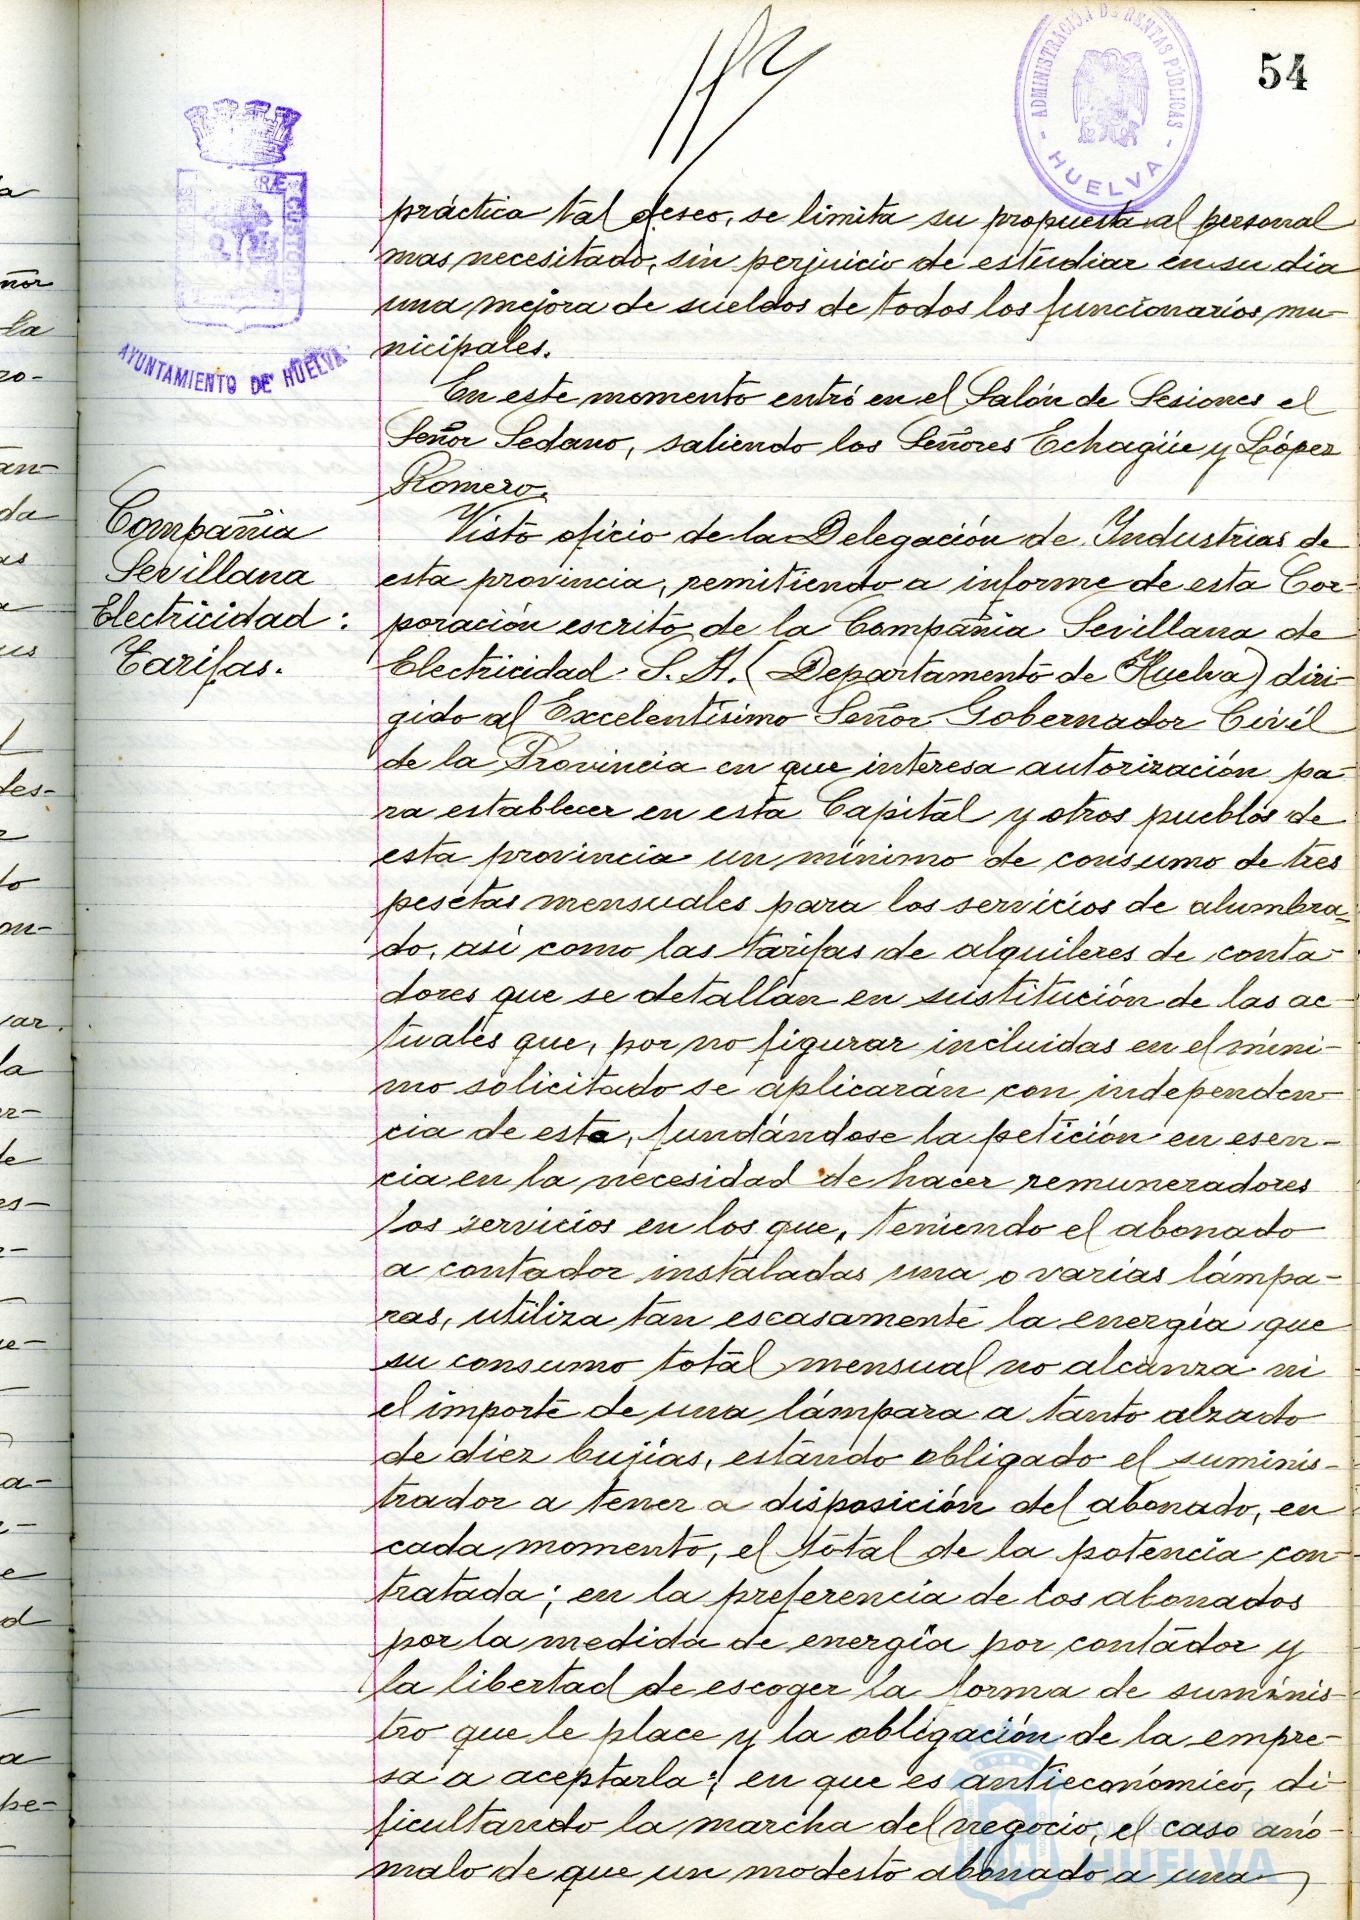 54
ADMINISTRACIÓN DE RENTAS PÚBLICAS
- HUELVA -
AYUNTAMIENTO DE HUELVA
práctica tal deseo, se limita su propuesta al personal
mas necesitado, sin perjuicio de estudiar en su dia
una mejora de sueldos de todos los funcionarios mu-
nicipales.
En este momento entró en el Salón de Sesiones el
Señor Sedano, saliendo los Señores Echagüe y López
Romero.
Compañia
Sevillana
Electricidad:
Tarifas.
Visto oficio de la Delegación de Industrias de
esta provincia, remitiendo a informe de esta Cor-
poración escrito de la Compañia Sevillana de
Electricidad S.A. (Departamento de Huelva) diri-
gido al Excelentísimo Señor Gobernador Civil
de la Provincia en que interesa autorización pa-
ra establecer en esta Capital y otros pueblos de
esta provincia un mínimo de consumo de tres
pesetas mensuales para los servicios de alumbra-
do, asi como las tarifas de alquileres de conta-
dores que se detallan en sustitución de las ac-
tuales que, por no figurar incluidas en el míni-
mo solicitado se aplicarán con independen-
cia de esta, fundándose la petición en esen-
cia en la necesidad de hacer remuneradores
los servicios en los que, teniendo el abonado
a contador instaladas una o varias lámpa-
ras, utiliza tan escasamente la energía que
su consumo total mensual no alcanza ni
el importe de una lámpara a tanto alzado
de diez bujías, estando obligado el suminis-
trador a tener a disposición del abonado, en
cada momento, el total de la potencia con-
tratada; en la preferencia de los abonados
por la medida de energía por contador y
la libertad de escoger la forma de suminis-
tro que le place y la obligación de la empre-
sa a aceptarla; en que es antieconómico, di-
ficultando la marcha del negocio, el caso anó-
malo de que un modesto abonado a una
HUELVA